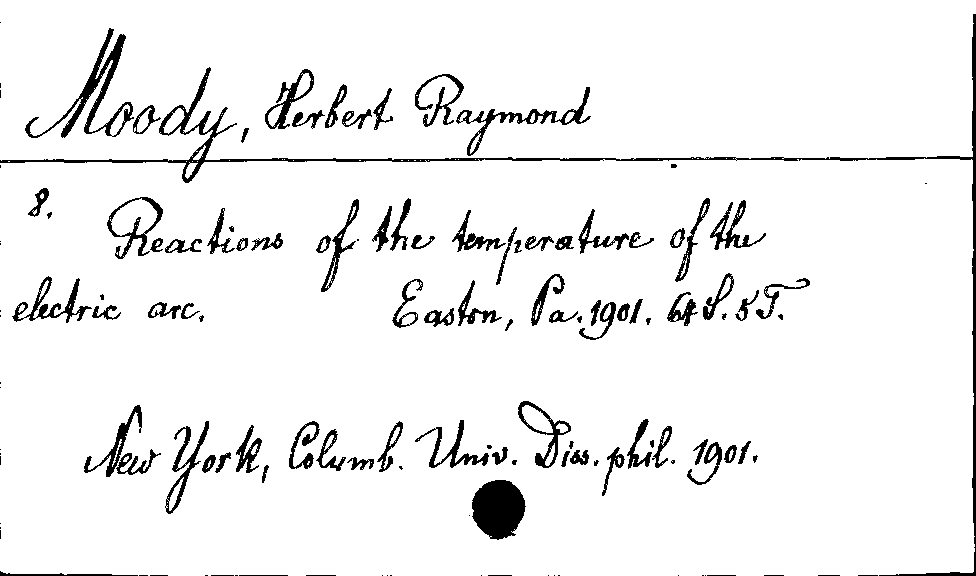 Moody, Herbert Raymond
8.
Reactions of the temperature of the
electric arc. Easton, Pa. 1901. 64 S. 5 T.
New York, Columb. Univ. Diss. phil. 1901.